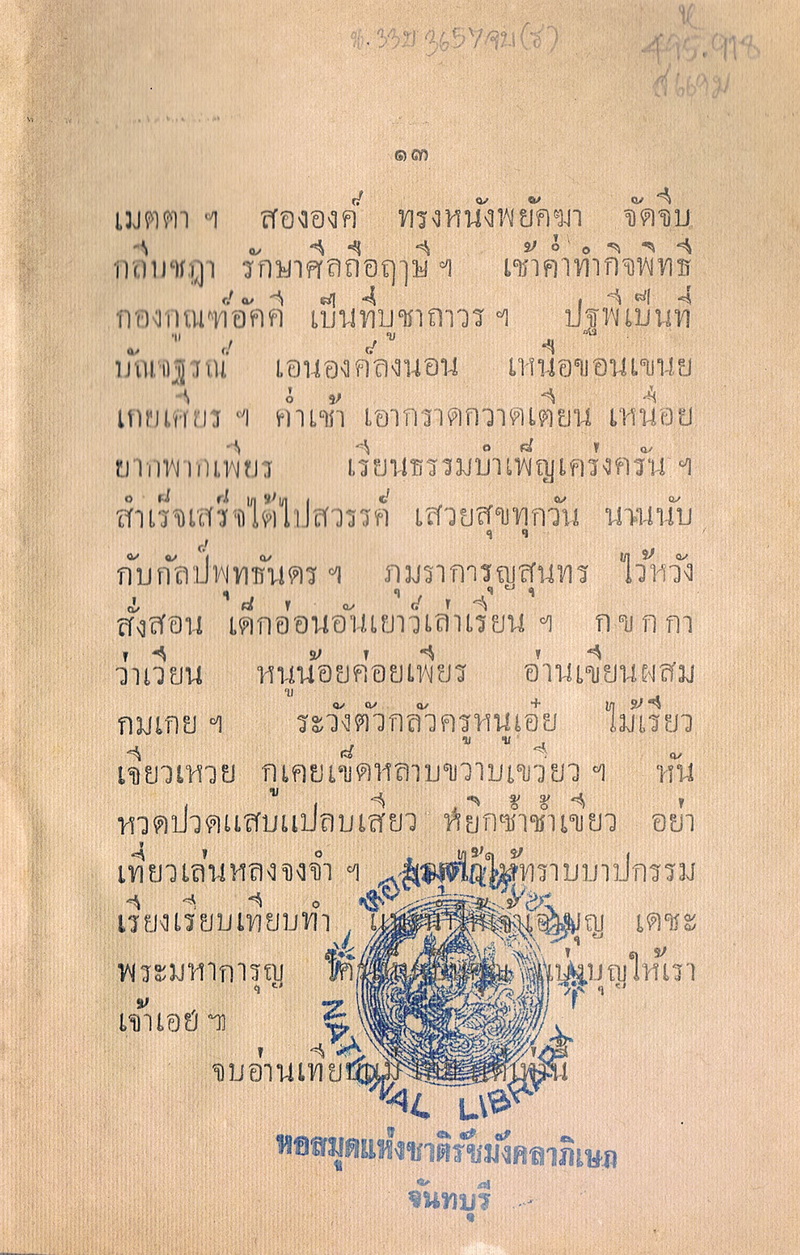 น.
495.918
๑๓
เมตตา ฯ สององค์ ทรงหนังพยัคฆา จัดจีบ
กลีบชฎา รักษาศีลถือฤๅษี ฯ เช้าค่ำทำกิจพิทธี
กองกูณฑ์อัคคี เป็นที่บูชาถาวร ฯ ปฐพีเป็นที่
บัณจฐรณ์ เอนองค์ลงนอน เหนือขอนเขนย
เกยเศียร ฯ ค่ำเช้า เอากราดกวาดเตียน เหนื่อย
ยากพากเพียร เรียนธรรมบำเพ็ญเคร่งครัน ฯ
สำเร็จเสร็จได้ไปสวรรค์ เสวยสุขทุกวัน นานนับ
กับกัลป์พุทธันดร ฯ ภุมราการุญสุนทร ไว้หวัง
สั่งสอน เด็กอ่อนอันเยาว์เล่าเรียน ฯ ก ข ก กา
ว่าเวียน หนูน้อยค่อยเพียร อ่านเขียนผสม
กมเกย ฯ ระวังตัวกลัวครูหนูเอ๋ย ไม้เรียว
เจียวเหวย กูเคยเข็ดหลาบขวาบเขวียว ฯ หัน
หวดปวดแสบแปลบเสียว หยิกซ้ำช้ำเขียว อย่า
เที่ยวเล่นหลงจงจำ ฯ ให้ทราบบาปกรรม
เรียงเรียบเทียบทำ บุญ เดชะ
พระมหาการุญ แบ่งบุญให้เรา
เจ้าเอย ๚
จบอ่านเทียบแม่ แต่เท่านี้
NATIONAL LIBRARY
หอสมุดแห่งชาติรัชมังคลาภิเษก
จันทบุรี